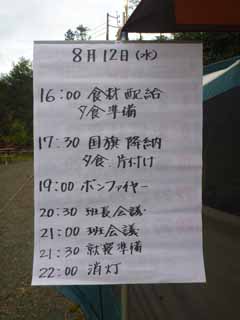 8月12日(水)
16:00 食材配給
夕食準備
17:30 国旗降納
夕食 片付け
19:00 ボンファイヤー
20:30 班長会議
21:00 班会議
21:30 就寝準備
22:00 消灯